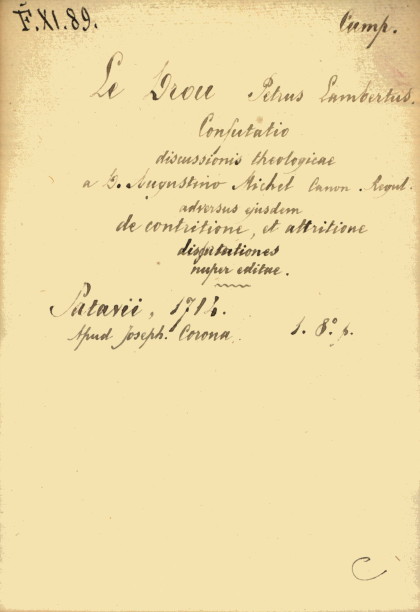 F.XI.89. Cump.
Le Drou Petrus Lambertus.
Confutatio
discussionis theologicae
a D. Augustino Michel Canon. Regul.
adversus ejusdem
de contritione, et attritione
disputationes
nuper editae.
Patavii, 1714.
Apud Joseph. Corona. 1. 8° p.